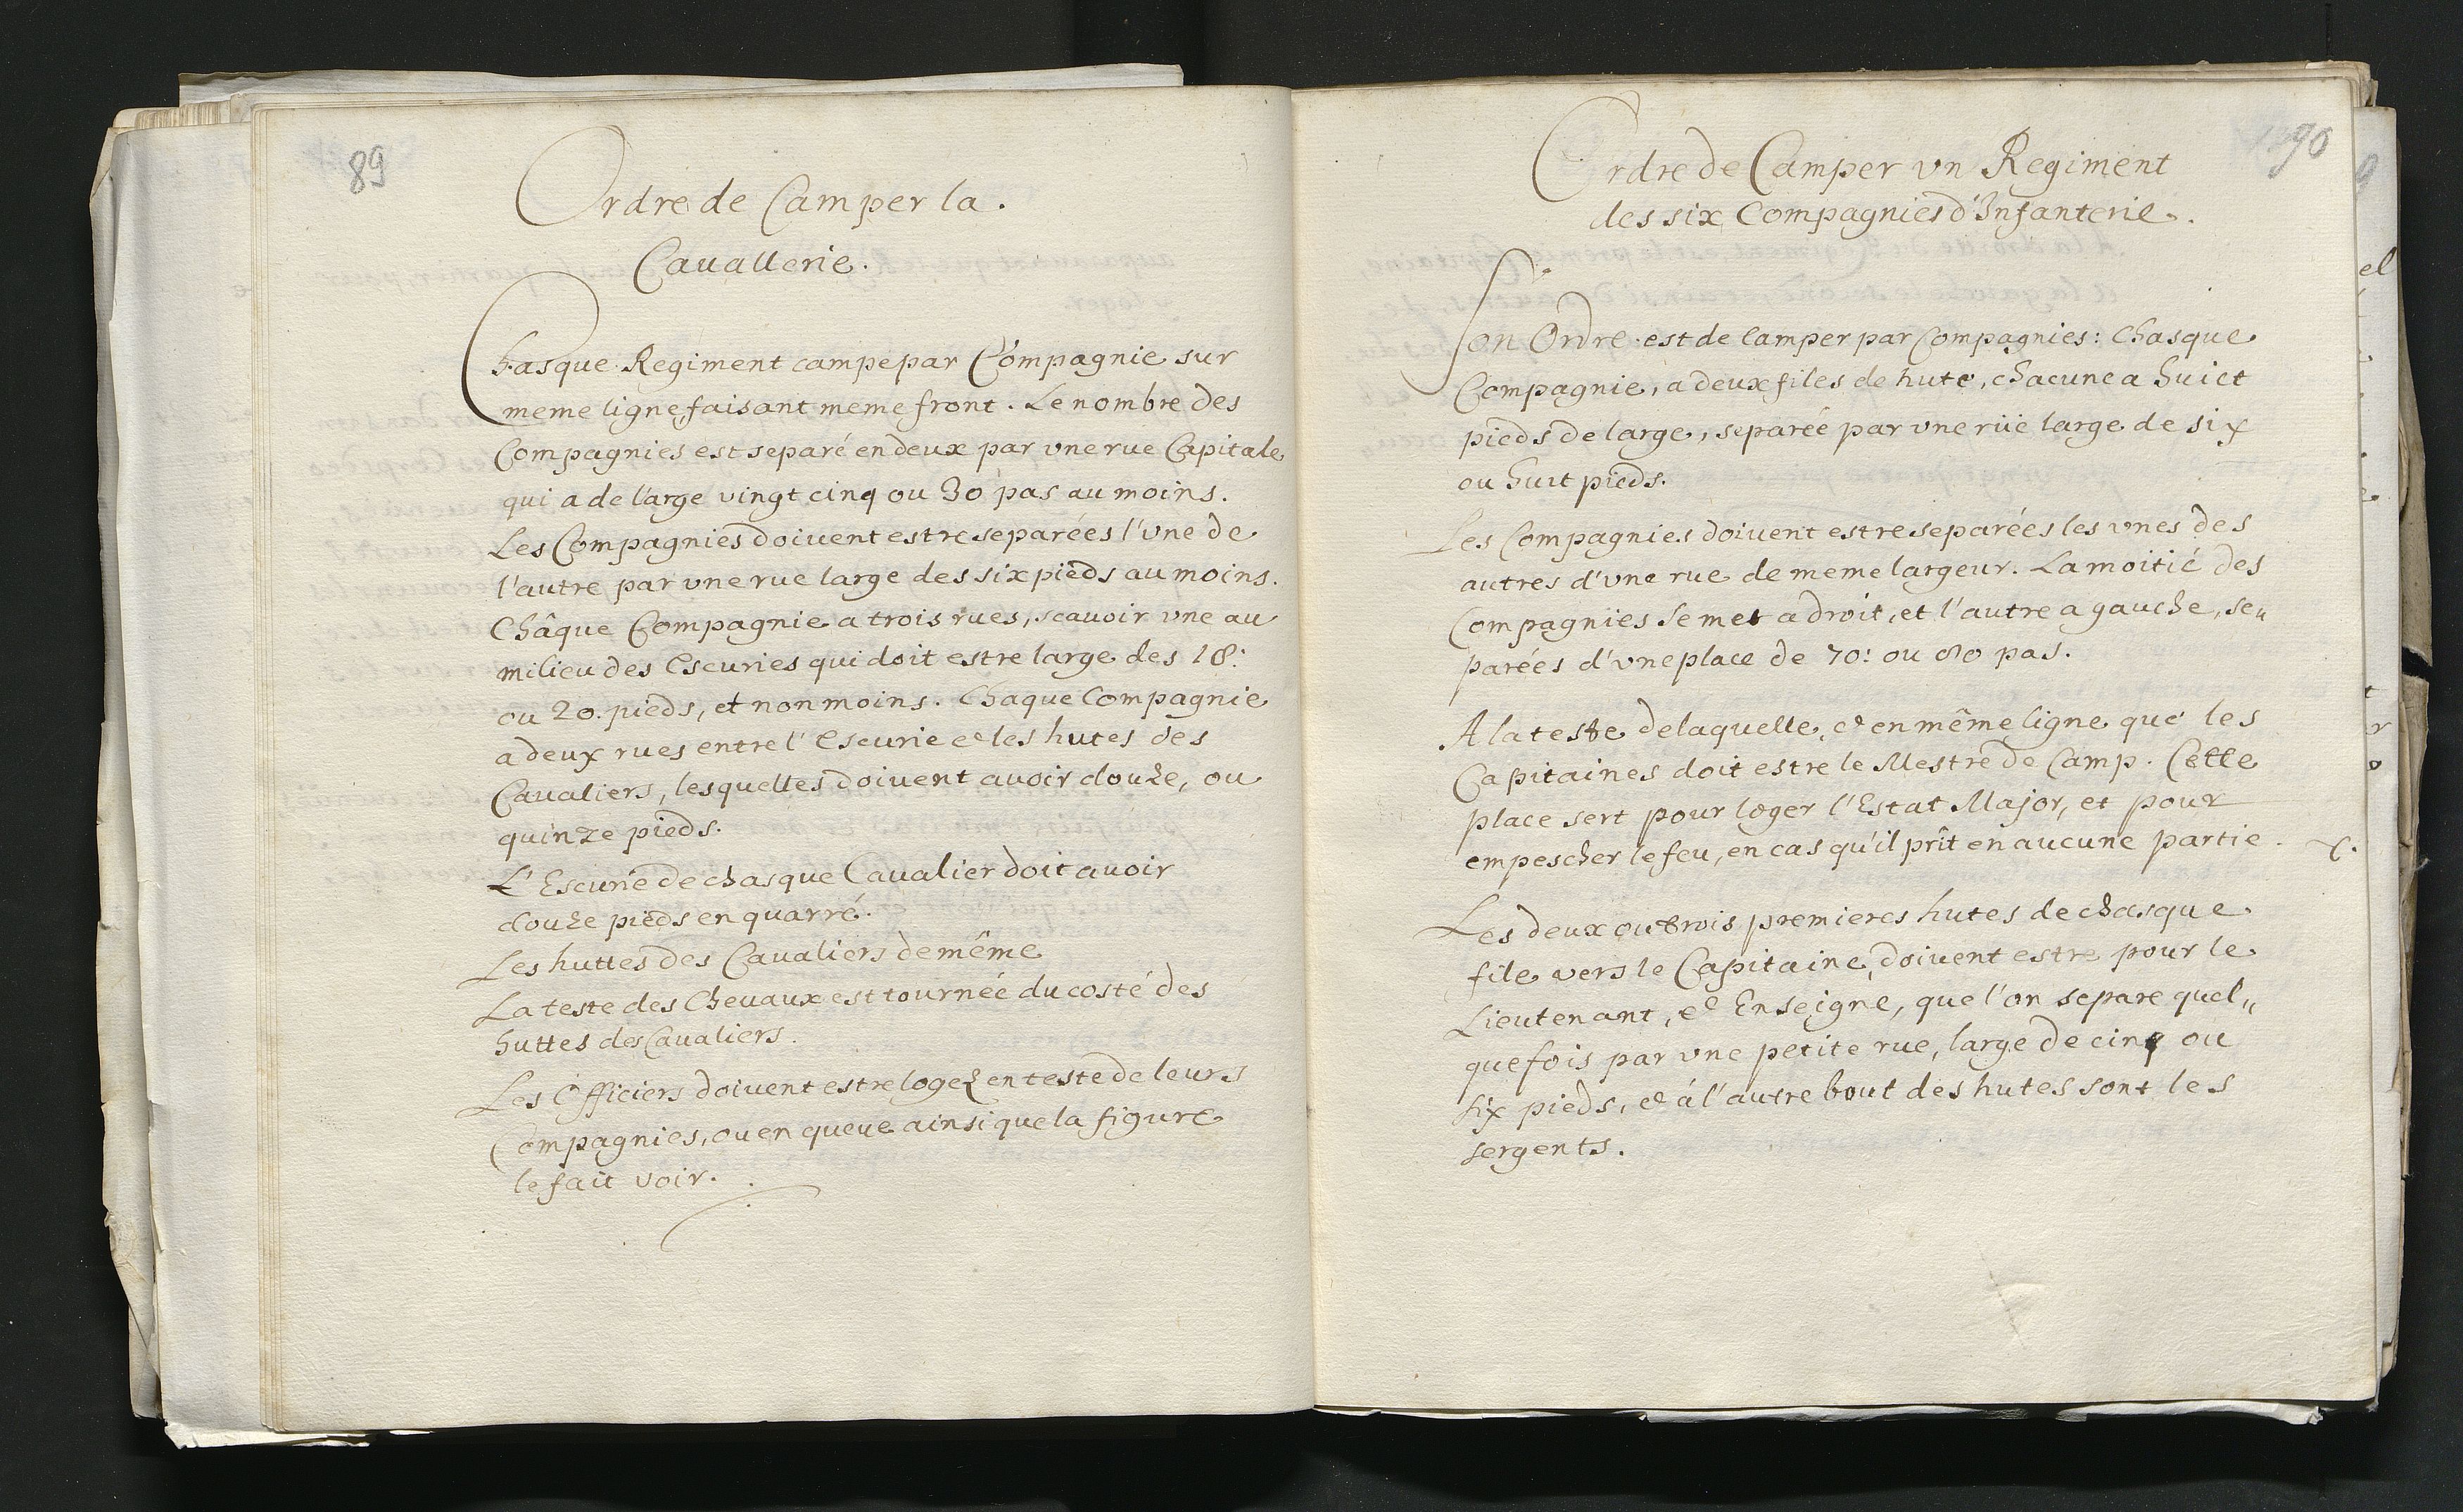 89
Ordre de Camper la.
Cauallerie.
Chasque Regiment campe par Compagnie sur
meme ligne faisant meme front. Le nombre des
Compagnies est separé en deux par vne rue Capitale
qui a de large vingt cinq ou 30 pas au moins.
Les Compagnies doiuent estre separées l'vne de
l'autre par vne rue large des six pieds au moins.
Châque Compagnie a trois rues, scauoir vne au
milieu des Escuries qui doit estre large des 18:
ou 20. pieds, et non moins. Chaque Compagnie
a deux rues entre l'Escurie et les hutes des
Caualiers, lesquelles doiuent auoir douze, ou
quinze pieds.
L'Escurie de chasque Caualier doit auoir
douze pieds en quarré.
Les huttes des Caualiers de même
La teste des Cheuaux est tournée du costé des
huttes des Caualiers.
Les Officiers doiuent estre logez en teste de leurs
Compagnies, ou en queue ainsi que la figure
le fait voir.
90
Ordre de Camper vn Regiment
des six Compagnies d'Infanterie.
Son Ordre est de camper par Compagnies: Chasque
Compagnie, a deux files de hute, chacune a huict
pieds de large, separée par vne rüe large de six
ou huit pieds.
Les Compagnies doiuent estre separées les vnes des
autres d'vne rue de meme largeur. La moitié des
Compagnies se met a droit, et l'autre a gauche, se„
parées d'vne place de 70: ou 80 pas.
A la teste de laquelle, et en même ligne que les
Capitaines doit estre le Mestre de Camp. Cette
place sert pour loger l'Estat Major, et pour
empescher le feu, en cas qu'il prît en aucune partie.
Les deux ou trois premieres hutes de chasque
file vers le Capitaine, doiuent estre pour le
Lieutenant, et Enseigne, que l'on separe quel„
quefois par vne petite rue, large de cinq ou
six pieds, et á l'autre bout des hutes sont les
sergents.